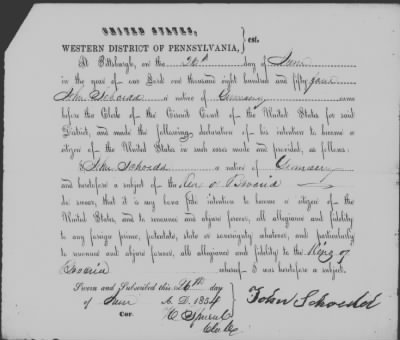 UNITED STATES,
WESTERN DISTRICT OF PENNSYLVANIA, } sct.
At Pittsburgh, on the 26th day of June
in the year of our Lord one thousand eight hundred and fifty four
John a native of Germany came
before the Clerk of the Circuit Court of the United States for said
District, and made the following declaration of his intention to become a
citizen of the United States in such cases made and provided, as follows:
I John a native of Germany
and heretofore a subject of the King of Bavaria
do swear, that it is my bona fide intention to become a citizen of the
United States, and to renounce and abjure forever, all allegiance and fidelity
to any foreign prince, potentate, state or sovereignty whatever, and particularly
to renounce and abjure forever, all allegiance and fidelity to the King of
Bavaria whereof I was heretofore a subject.
Sworn and Subscribed this 26th day
of June A. D. 1854
Cor.
Clerk
John